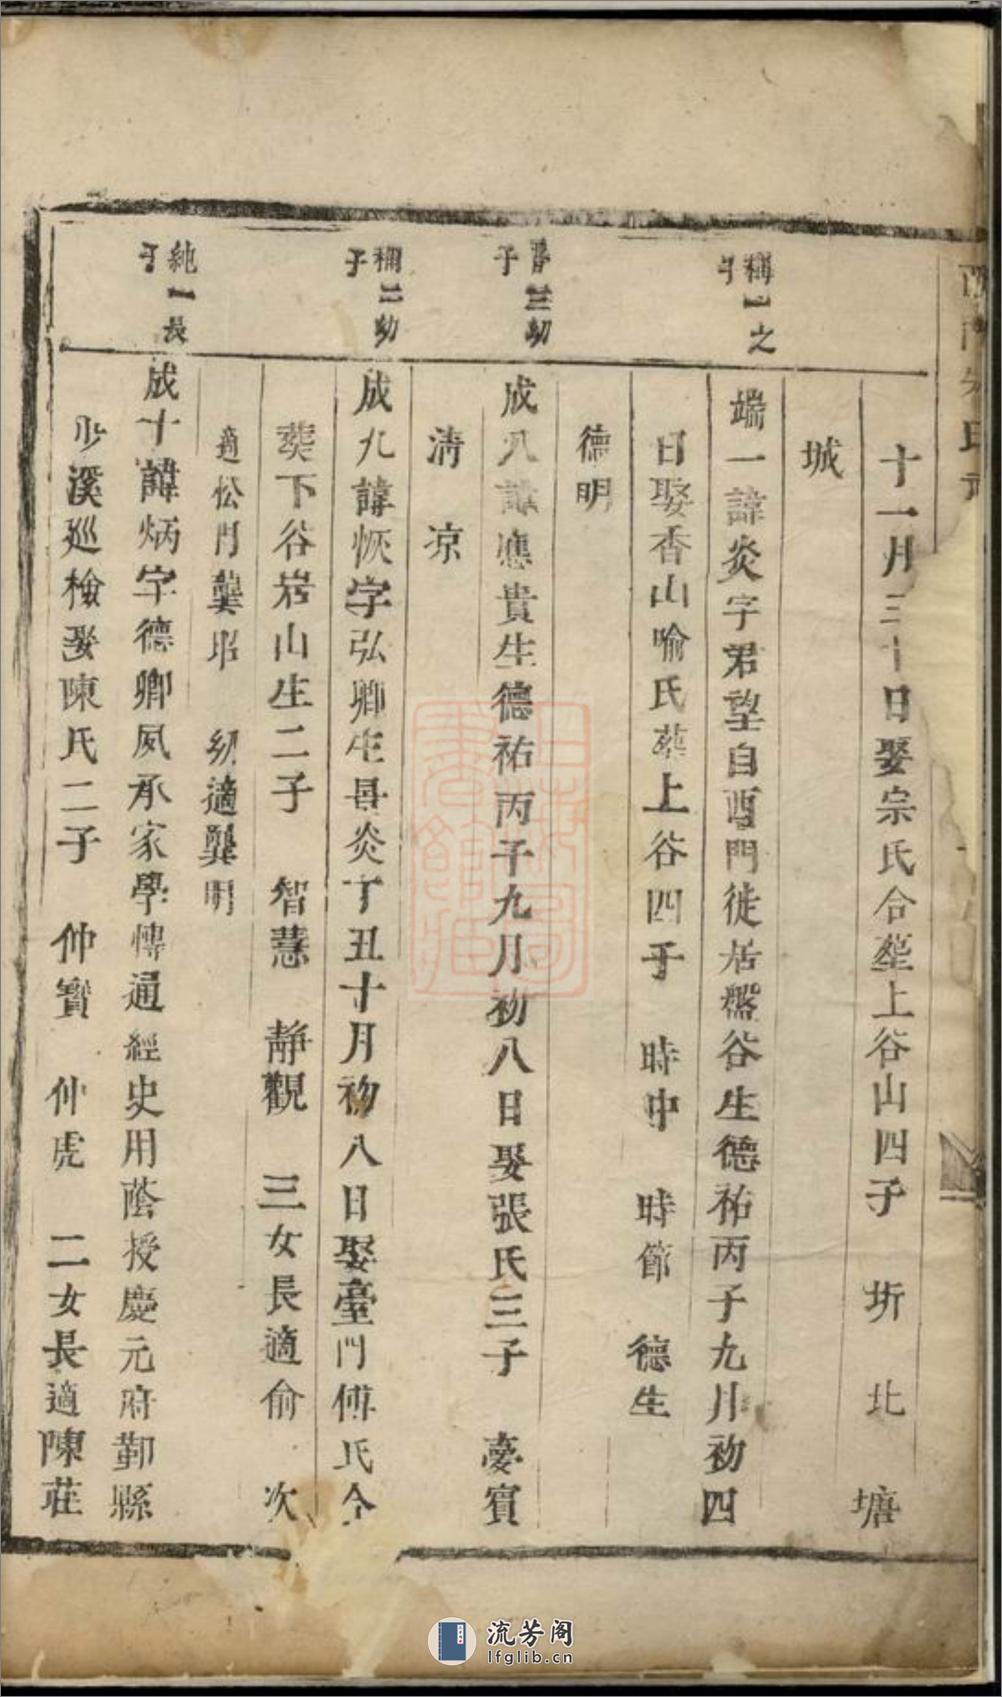 十一月三十日娶宗氏合塟上谷山四子　圻　北　塘
城
稱一之子
端一諱炎字君望自酉門徙居盤谷生德祐丙子九月初四
日娶香山喻氏葬上谷四子　時中　時節　德生
德明
三幼子
成八諱應貴生德祐丙子九月初八日娶張氏三子　夢賓
清　凉
稱二幼子
成九諱恢字弘卿生景炎丁丑十月初八日娶臺門傅氏合
葬下谷岩山生二子　智慧　靜觀　三女長適俞　次
適松門龔昭　幼適龔明
純一長子
成十諱炳字德卿夙承家學博通經史用蔭授慶元府鄞縣
溪廵檢娶陳氏二子　仲寶　仲虎　二女長適陳莊
流芳阁
lfglib.cn